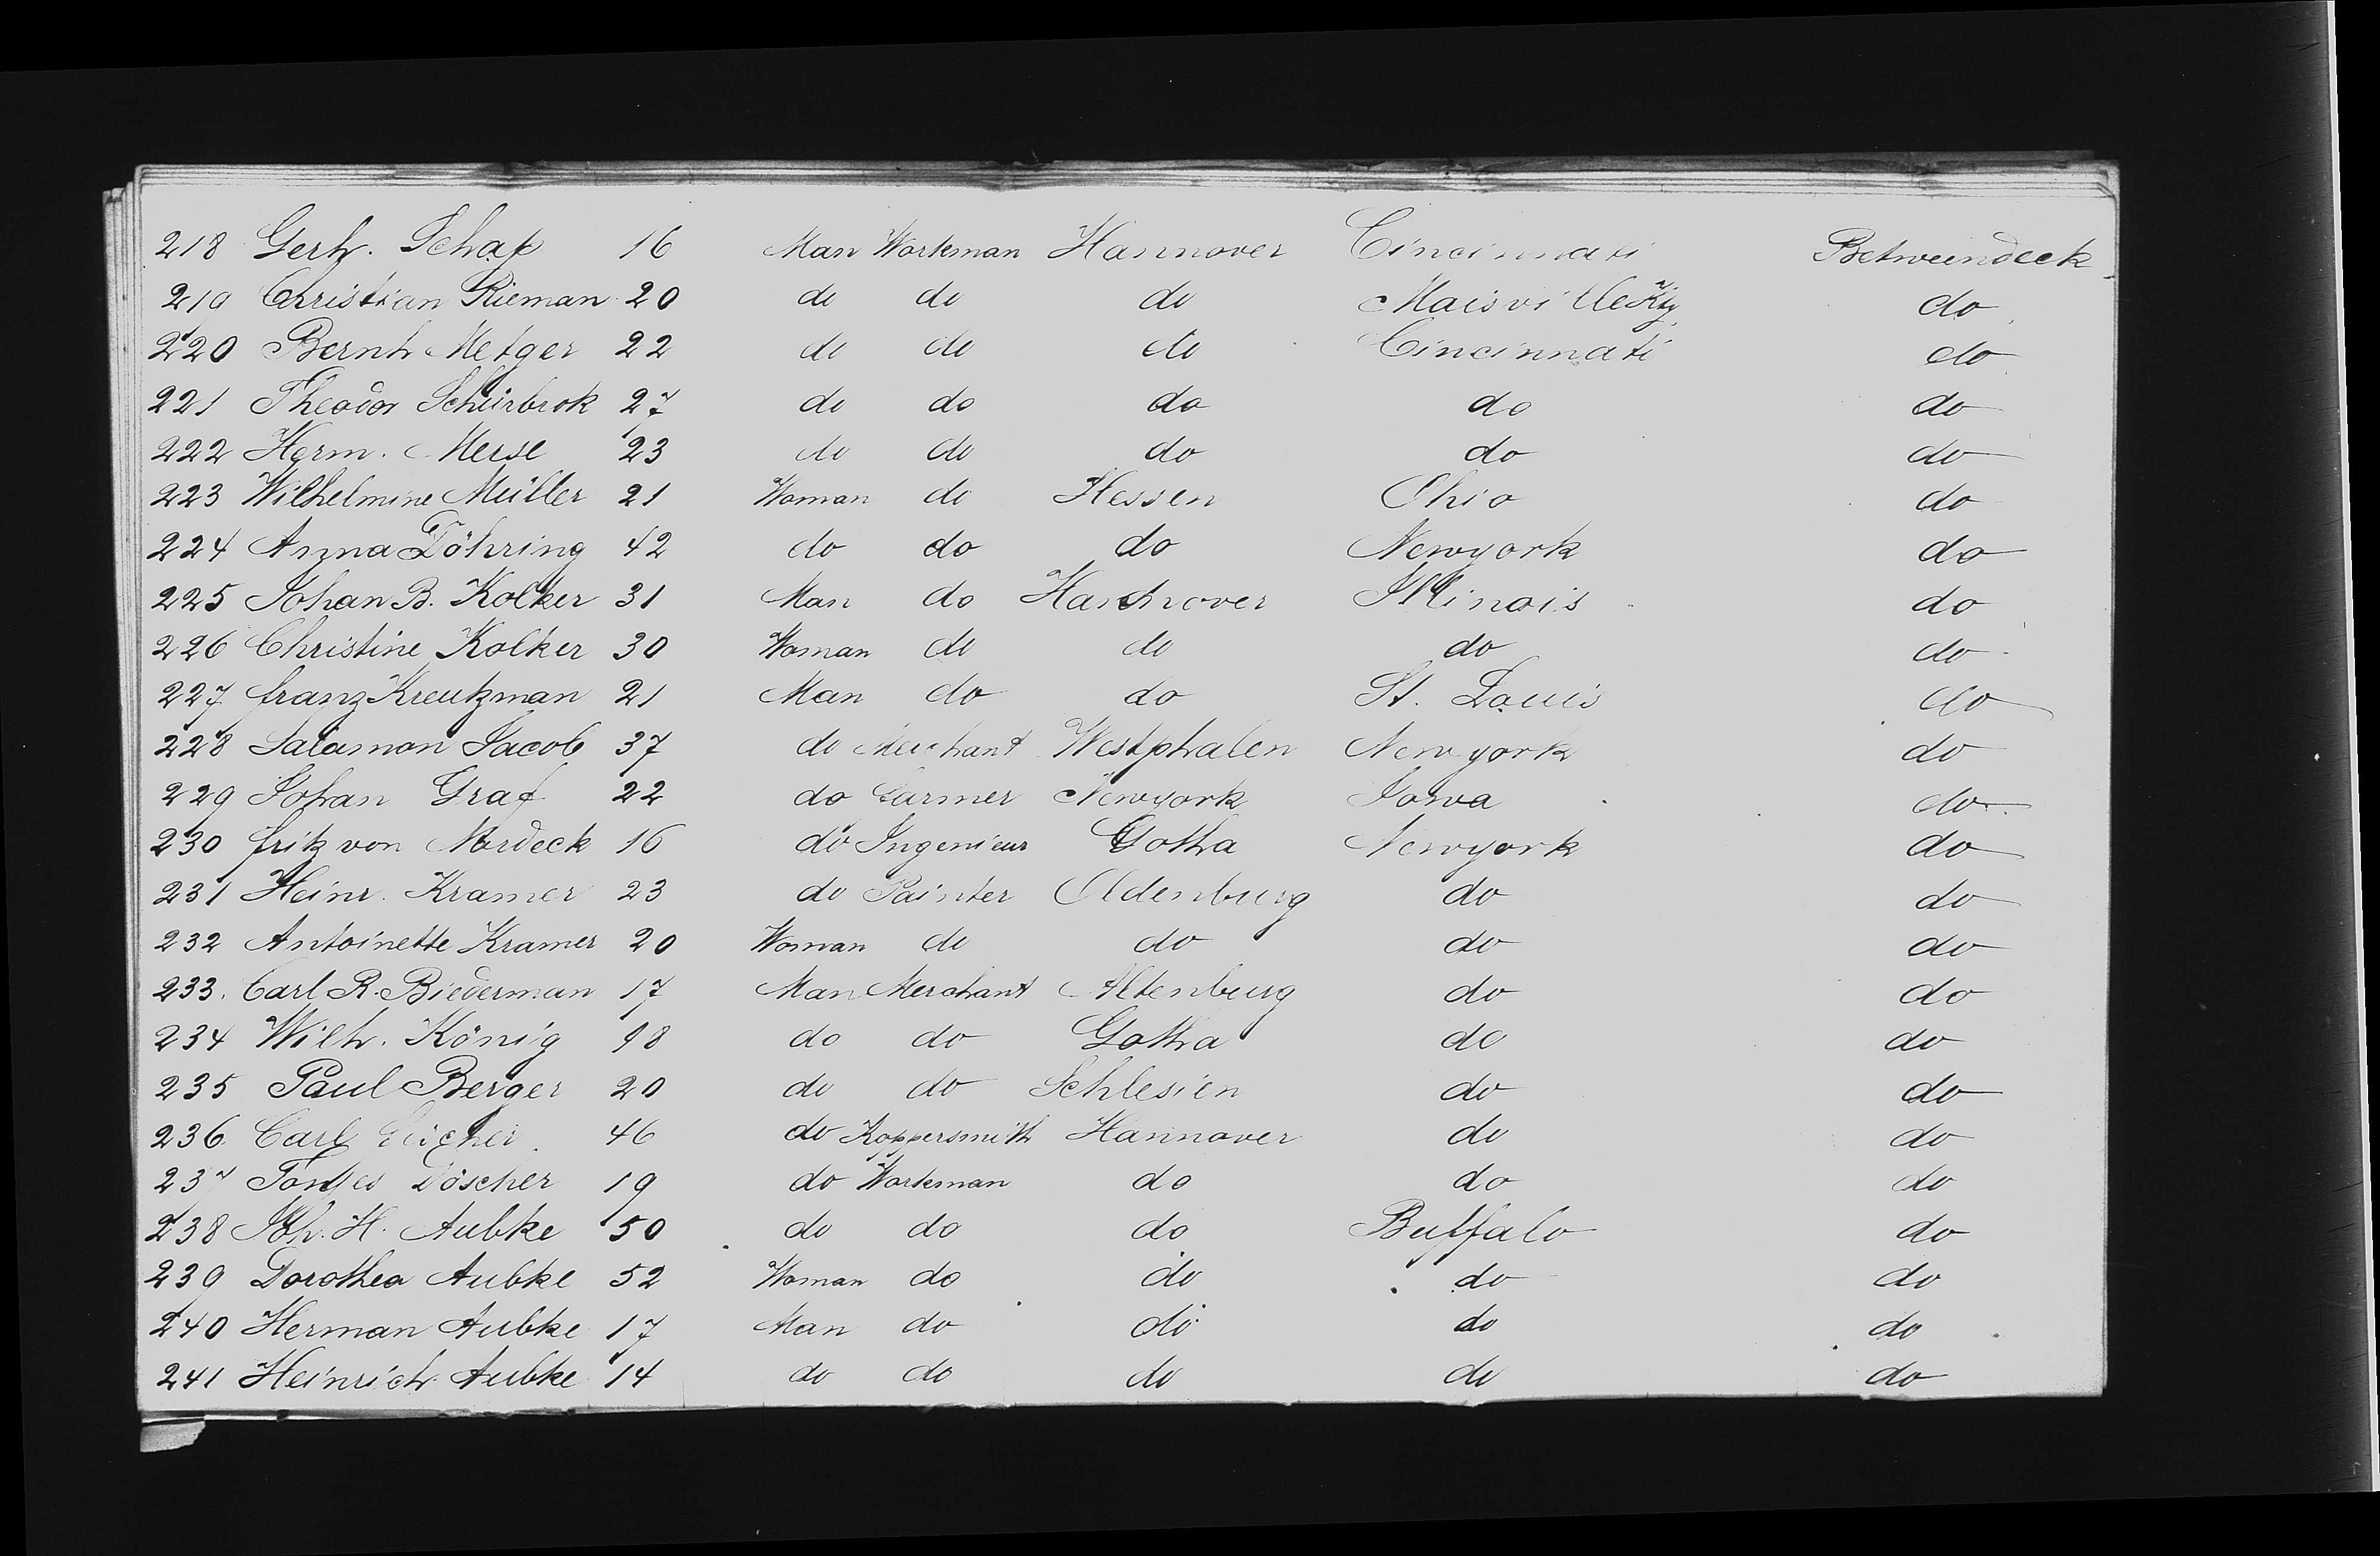 218 Gerh. Schaf 16 Man Workman Hannover Cincinnati Betweendeck
219 Christian Rieman 20 do do do Maisville Kty do
220 Bernh Metger 22 do do do Cincinnati do
221 Theodor Scheürbrok 27 do do do do do
222 Herm. Merse 23 do do do do do
223 Wilhelmine Müller 21 Woman do Hessen Ohio do
224 Anna Döhring 42 do do do Newyork do
225 Johan B. Kolker 31 Man do Hannover Illinois do
226 Christine Kolker 30 Woman do do do do
227 franz Kreutzman 21 Man do do St. Louis do
228 Salamon Jacob 37 do Merchant Westphalen Newyork do
229 Johan Graf 22 do Farmer Newyork Iowa do
230 fritz von Nordeck 16 do Ingenieur Gotha Newyork do
231 Heinr. Kramer 23 do Painter Oldenburg do do
232 Antoinette Kramer 20 Woman do do do do
233. Carl R. Biederman 17 Man Merchant Altenburg do do
234 Wilh. König 18 do do Gotha do do
235 Paul Berger 20 do do Schlesien do do
236. Carl 46 do Koppersmith Hannover do do
237 Tönjes Döscher 19 do Workman do do do
238 Joh. H. Aubke 50 do do do Buffalo do
239 Dorothea Aubke 52 Woman do do do do
240 Herman Aubke 17 Man do do do do
241 Heinrich Aubke 14 do do do do do